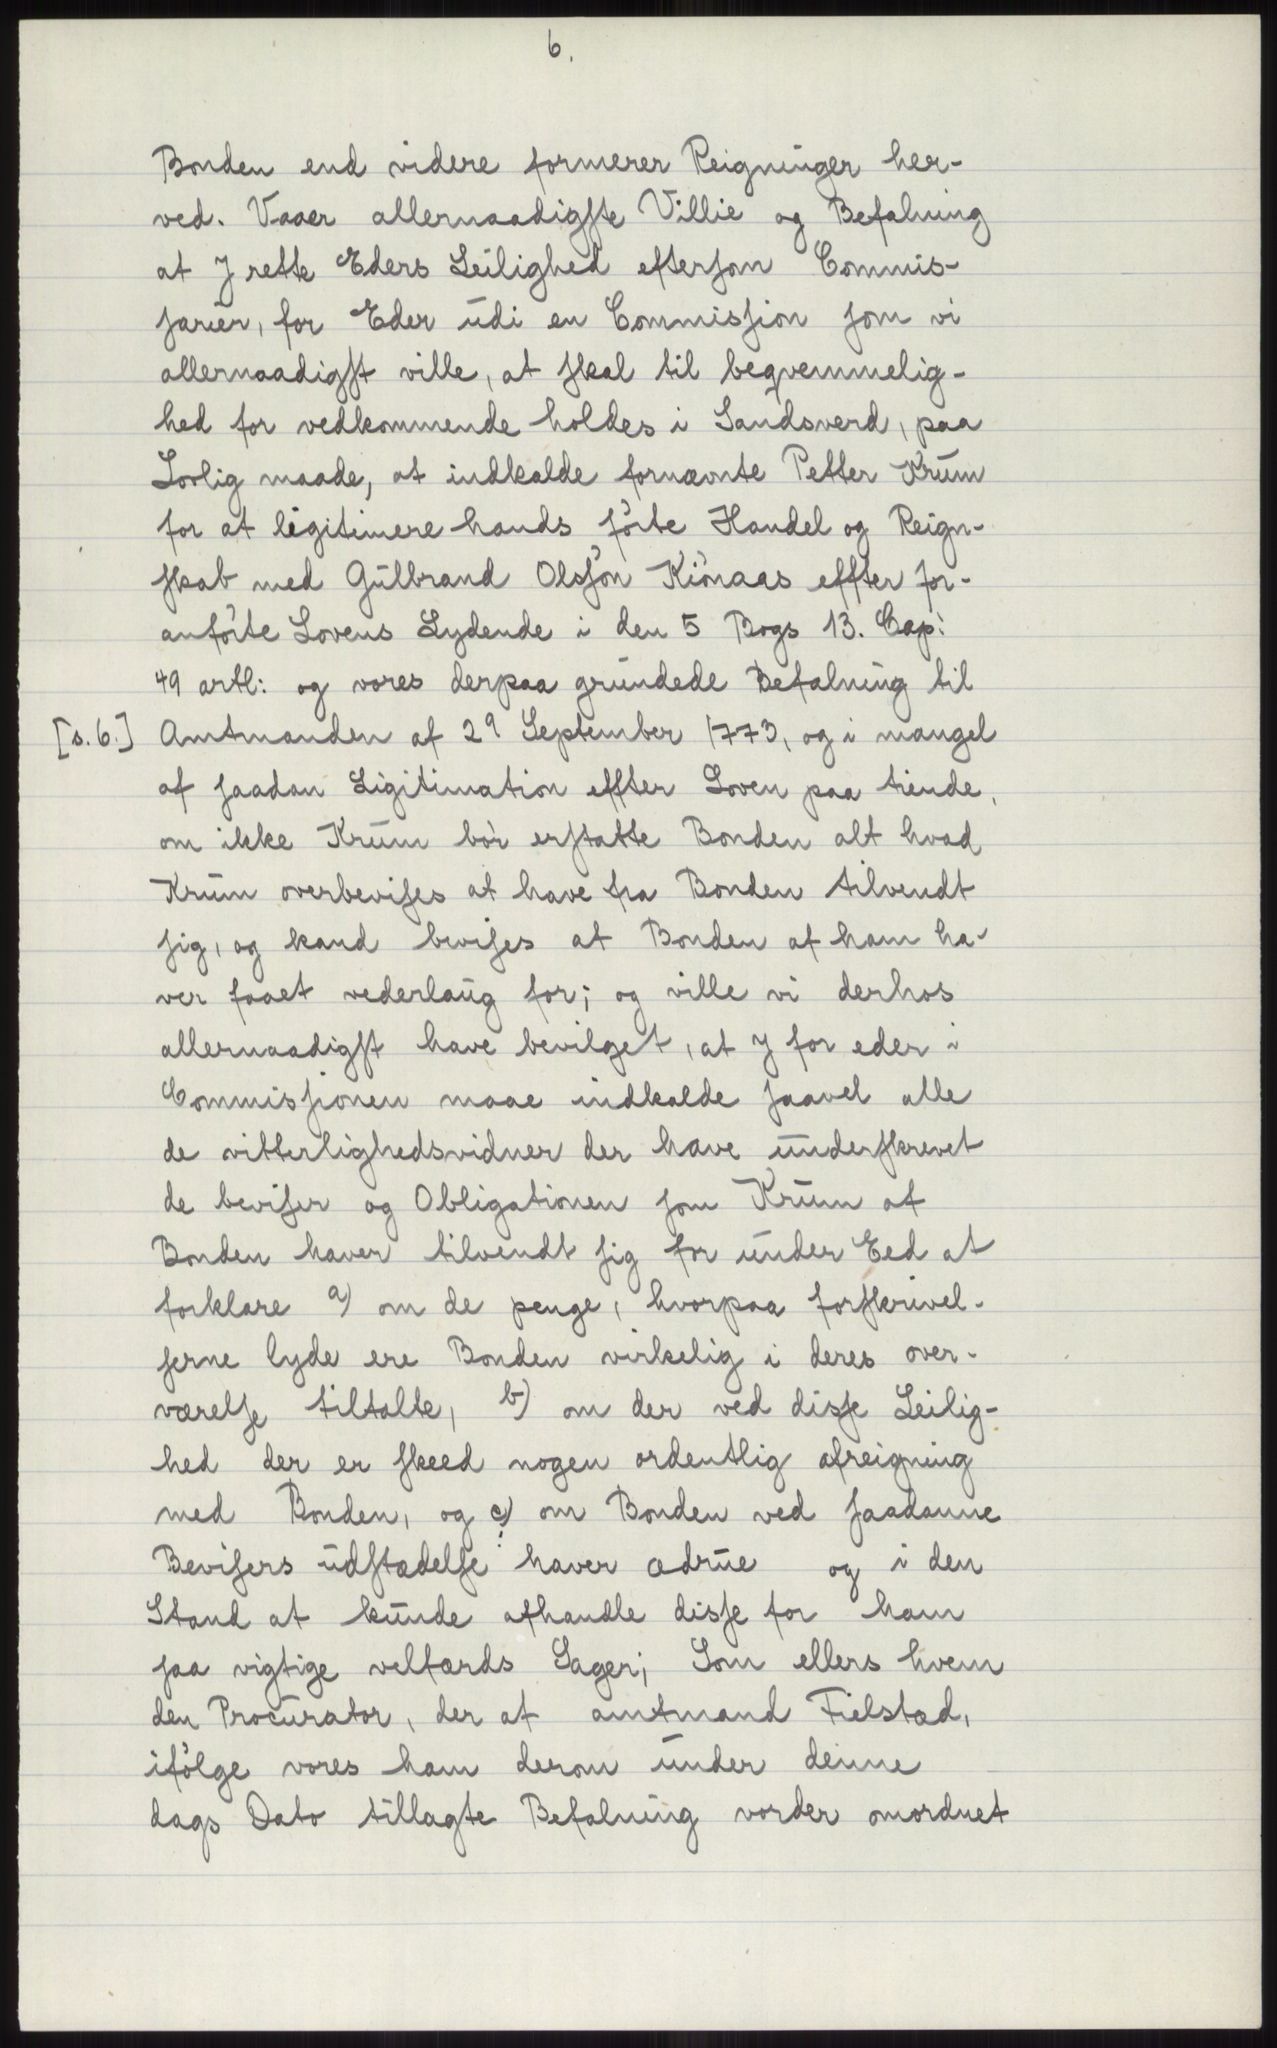 6.
Bonden end videre formerer Reigninger her-
ved. Vaaer allernaadigste Villie og Befalning
at J rette Eders Leilighed eftersom Commis-
sarier, for Eder udi en Commission som vi
allernaadigst ville, at skal til beqvemmelig-
hed for vedkommende holdes i Sandsverd, paa
Lovlig maade, at indkalde fornævnte Petter Krum
for at legitimere hands förte Handel og Reign-
skab med Gulbrand Olssön Kiönaas effter for-
anförte Lovens Lydende i den 5 Bogs 13. Cap:
49 artl: og vores derpaa grundede Befalning til
[s. 6.] Amtmanden af 29 September 1773, og i mangel
af saadan Ligitimation effter Loven paa tiende,
om ikke Krum bör erstatte Bonden alt hvad
Krum overbevises at have fra Bonden tilvendt
sig, og kand bevises at Bonden af ham ha-
ver faaet vederlaug for; og ville vi derhos
allernaadigst have bevilget, at J for eder i
Commissionen maae indkalde saavel alle
de vitterlighedsvidner der have underskrevet
de beviser og Obligationen som Krum af
Bonden haver tilvendt sig for under Eed at
forklare a) om de penge, hvorpaa forskrivel-
serne lyde ere Bonden virkelig i deres over-
værelse tiltalte, b) om der ved disse Leilig-
hed der er skeed nogen ordentlig afreigning
med Bonden, og c) om Bonden ved saadanne
Bevisers udstædelse haver ædrue og i den
Stand at kunde afhandle disse for ham
saa vigtige velfærds Sager; Som ellers hvem
den Procurator, der af amtmand Fielstæd,
ifölge vores ham derom under denne
dags Dato tillagte Befalning vorder omordnet